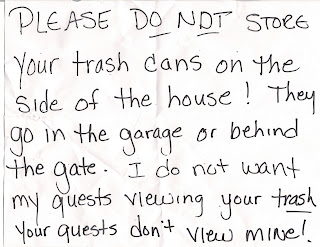 PLEASE DO NOT STORE
your trash cans on the
side of the house! They
go in the garage or behind
the gate. I do not want
my guests viewing your trash
your guests don't view mine!